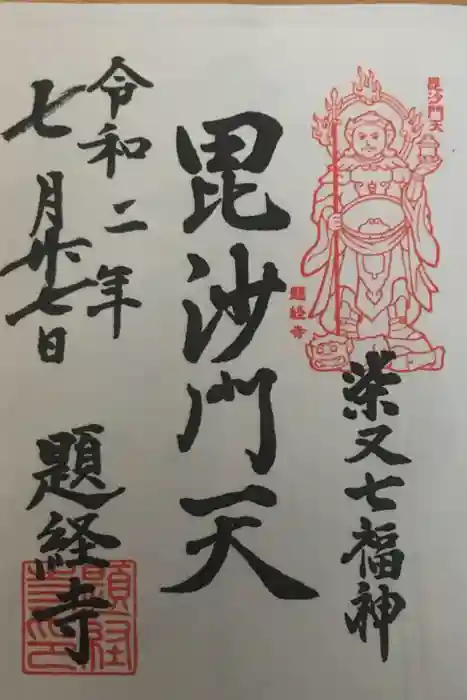 毘沙門天
題経寺
柴又七福神
毘沙門天
令和二年
七月廿七日
題経寺